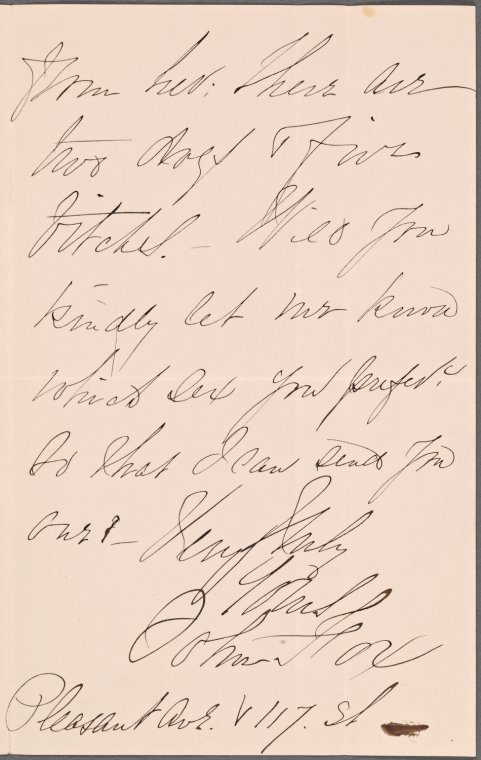 from her: There are
two dogs & five
bitches. – Will you
kindly let me know
which sex you prefer:
so that I can send you
one? – Very truly
Yours
John Fox
Pleasant Ave. & 117. St